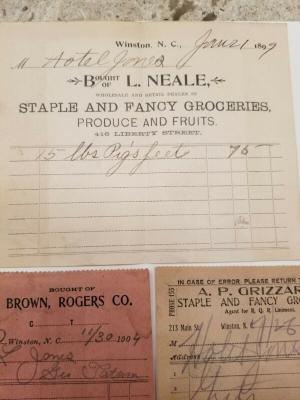 Winston, N. C., Jan 21 1897
M Hotel Jones
BOUGHT OF L. NEALE,
WHOLESALE AND RETAIL DEALER IN
STAPLE AND FANCY GROCERIES,
PRODUCE AND FRUITS.
416 LIBERTY STREET.
15 lbs Pig's feet 75
BOUGHT OF
BROWN, ROGERS CO.
C T
Winston, N. C. 11/30 1904
Jones
IN CASE OF ERROR PLEASE RETURN
PHONE 155
A. P. GRIZZAR
STAPLE AND FANCY GRO
Agent for R. Q. R. Liniment.
213 Main St. Winston, N. C. 9/26
M
Address
1
2
3